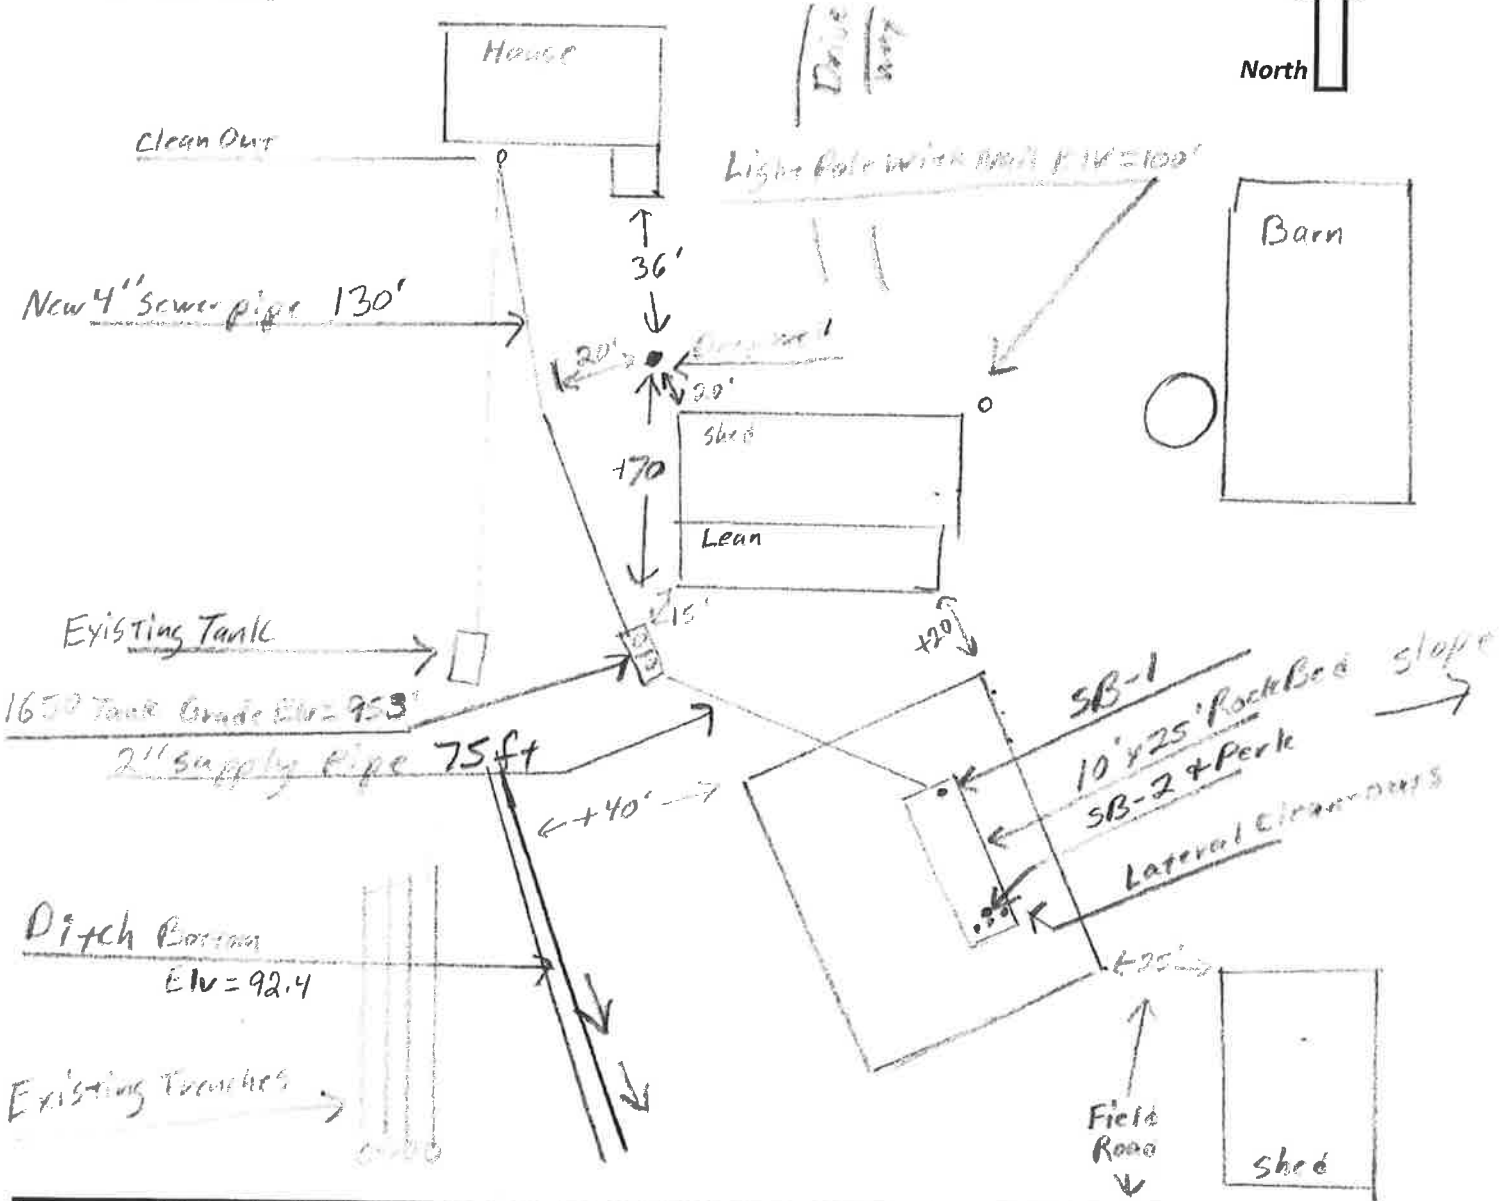 House
Drive
way
North
Clean Out
Light Pole With Nail Elv=100'
Barn
36'
New 4" Sewer pipe 130'
20'
Deep well
20'
Shed
+70
Lean
15'
Existing Tank
+20'
1650 Tank Grade Elv=953'
2" Supply Pipe 75ft
SB-1
10'x25' Rock Bed
Slope
SB-2 & Perk
+40'
Lateral Clean-outs
Ditch Bottom
Elv=92.4
+25'
Existing Trenches
Field
Road
Shed